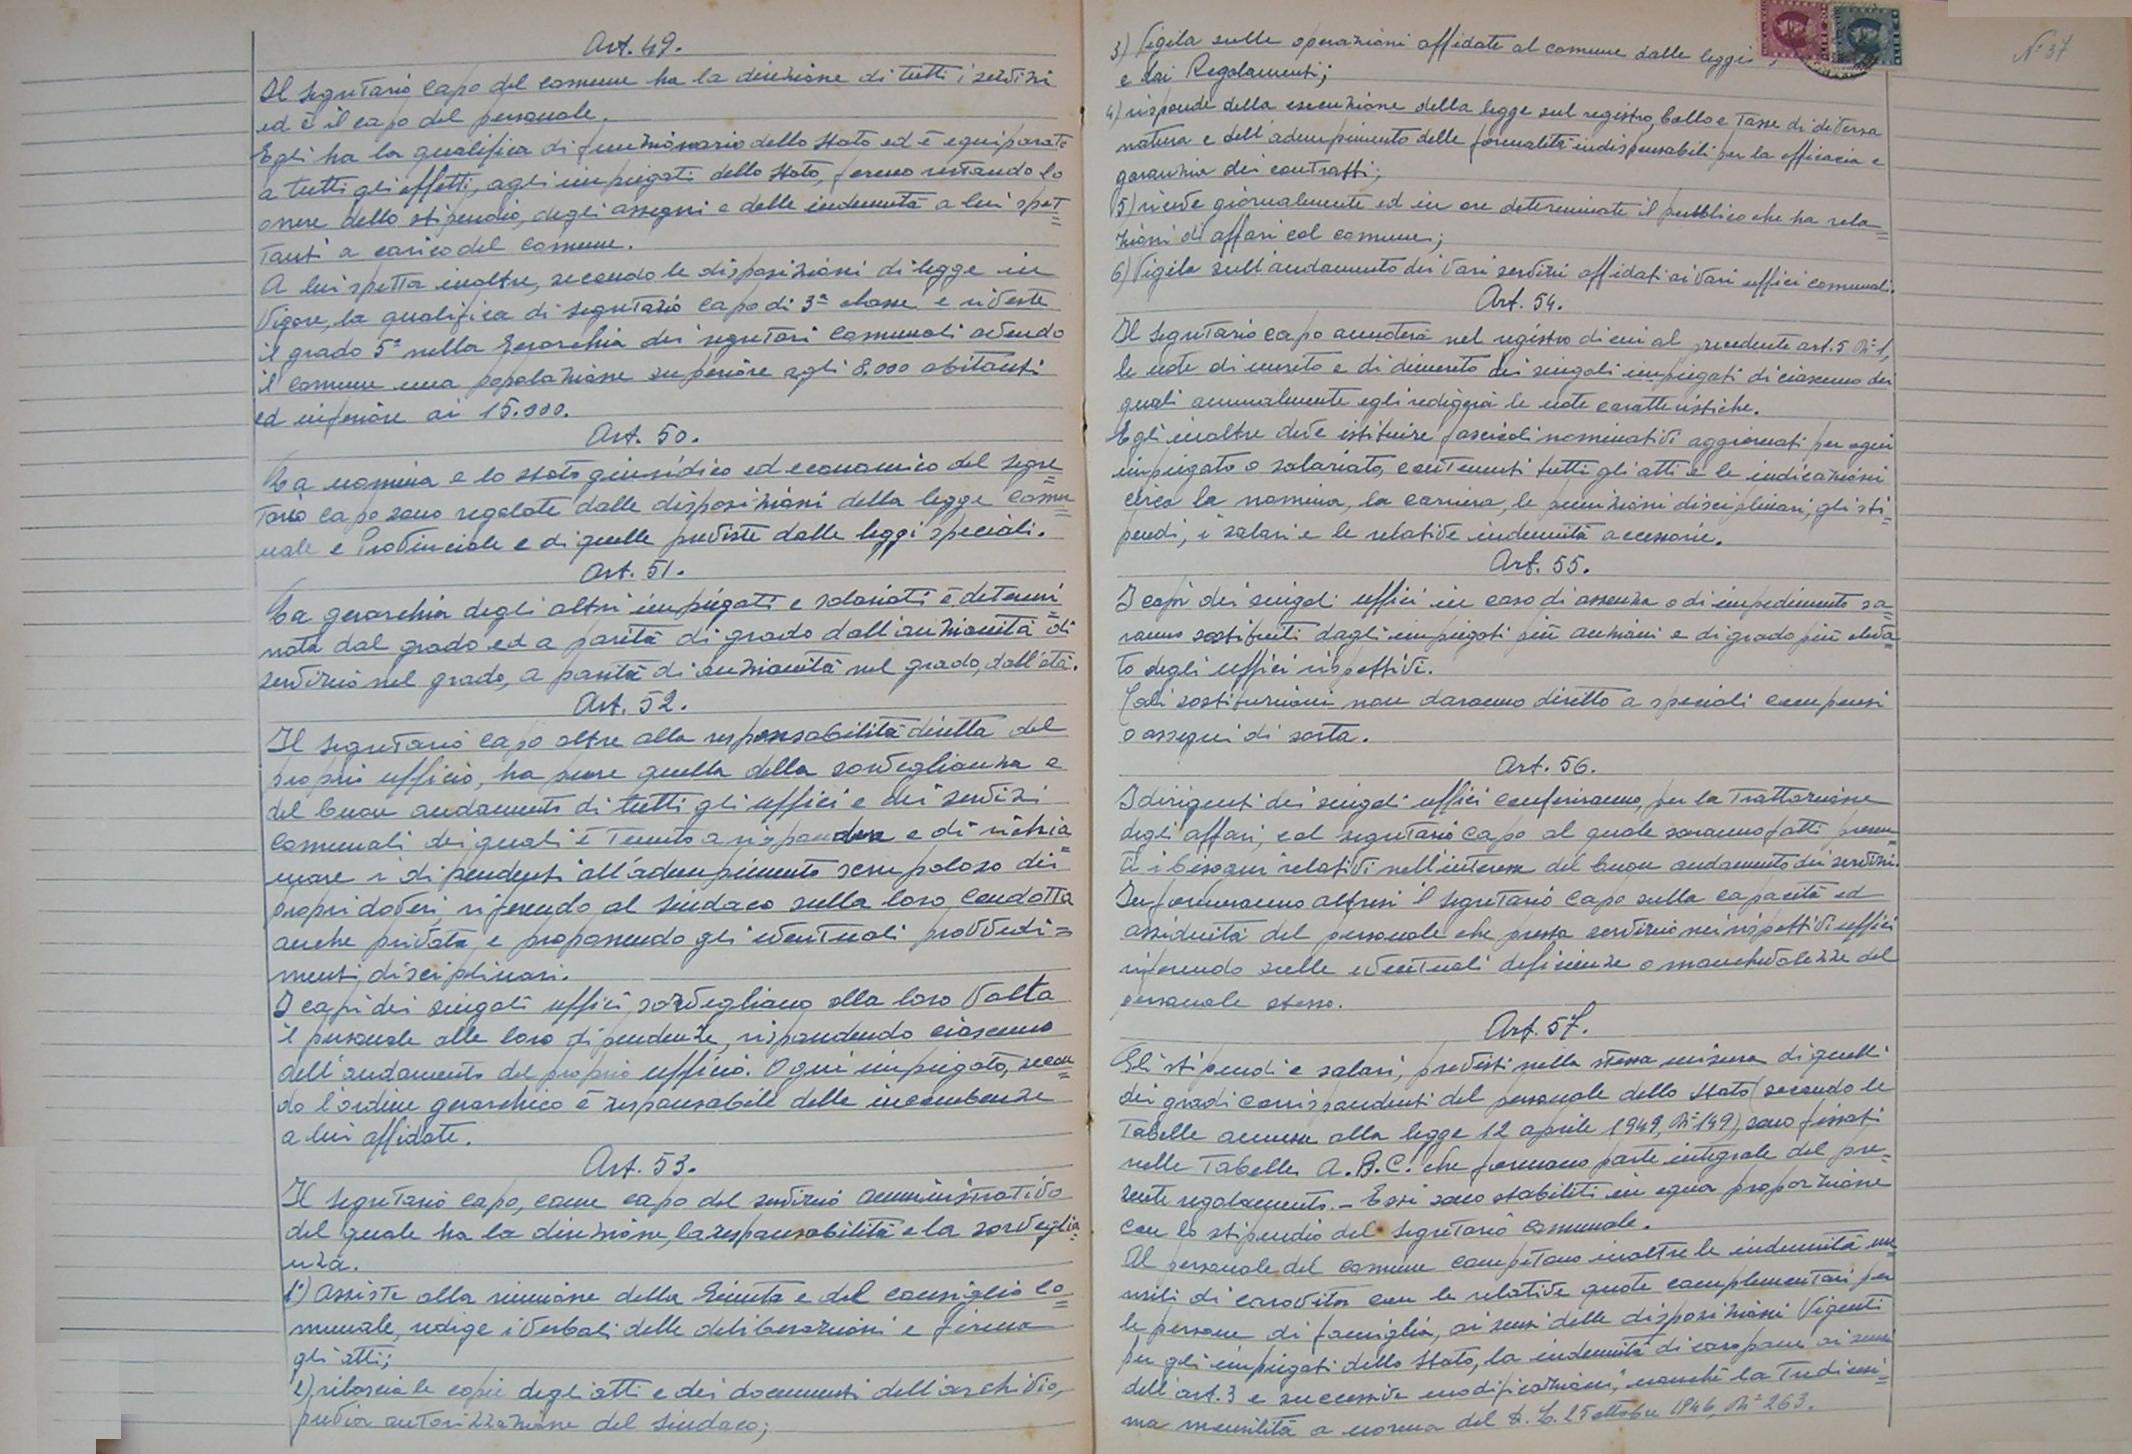 Art. 49.
Il segretario capo del comune ha la direzione di tutti i servizi
ed è il capo del personale.
Egli ha la qualifica di funzionario dello stato ed è equiparato
a tutti gli effetti, agli impiegati dello stato, fermo restando lo
onere dello stipendio, degli assegni e delle indennità a lui spet=
tanti a carico del comune.
A lui spetta inoltre, secondo le disposizioni di legge in
vigore, la qualifica di segretario capo di 3ª classe e riveste
il grado 5° nella gerarchia dei segretari comunali avendo
il comune una popolazione superiore agli 8.000 abitanti
ed inferiore ai 15.000.
Art. 50.
La nomina e lo stato giuridico ed economico del segre=
tario capo sono regolate dalle disposizioni della legge comu=
nale e Provinciale e di quelle previste dalle leggi speciali.
Art. 51.
La gerarchia degli altri impiegati e salariati è determi=
nata dal grado ed a parità di grado dall'anzianità di
servizio nel grado, a parità di anzianità nel grado, dall'età.
Art. 52.
Il segretario capo oltre alla responsabilità diretta del
proprio ufficio, ha pure quella della sorveglianza e
del buon andamento di tutti gli uffici e dei servizi
comunali dei quali è tenuto a rispondere e di richia=
mare i dipendenti all'adempimento scrupoloso dei
propri doveri, riferendo al sindaco sulla loro condotta
anche privata e proponendo gli eventuali provvedi=
menti disciplinari.
I capi dei singoli uffici sorvegliano alla loro volta
il personale alle loro dipendenze, rispondendo ciascuno
dell'andamento del proprio ufficio. Ogni impiegato, secon=
do l'ordine gerarchico è responsabile delle incombenze
a lui affidate.
Art. 53.
Il segretario capo, come capo del servizio amministrativo
del quale ha la direzione, la responsabilità e la sorveglia=
nza.
1°) assiste alla riunione della Giunta e del consiglio co=
munale, redige i verbali delle deliberazioni e firma
gli atti;
2) rilascia le copie degli atti e dei documenti dell'archivio,
previa autorizzazione del sindaco;
N° 37
3) Vigila sulle operazioni affidate al comune dalle leggi
e dai Regolamenti;
4) risponde della esecuzione della legge sul registro, bollo e tasse di diversa
natura e dell'adempimento delle formalità indispensabili per la efficacia e
garanzia dei contratti;
5) riceve giornalmente ed in ore determinate il pubblico che ha rela=
zioni di affari col comune;
6) Vigila sull'andamento dei vari servizi affidati ai vari uffici comunali.
Art. 54.
Il segretario capo annoterà nel registro di cui al precedente art. 5 N° 1,
le note di merito e di demerito dei singoli impiegati di ciascuno dei
quali annualmente egli redigerà le note caratteristiche.
Egli inoltre deve istituire fascicoli nominativi aggiornati per ogni
impiegato o salariato, contenenti tutti gli atti e le indicazioni
circa la nomina, la carriera, le punizioni disciplinari, gli sti=
pendi, i salari e le relative indennità accessorie.
Art. 55.
I capi dei singoli uffici in caso di assenza o di impedimento sa=
ranno sostituiti dagli impiegati più anziani e di grado più eleva=
to degli uffici rispettivi.
Tali sostituzioni non daranno diritto a speciali compensi
o assegni di sorta.
Art. 56.
I dirigenti dei singoli uffici conferiranno, per la trattazione
degli affari, col segretario capo al quale saranno fatti presen=
ti i bisogni relativi nell'interesse del buon andamento dei servizi.
Informeranno altresì il segretario capo sulla capacità ed
assiduità del personale che presta servizio nei rispettivi uffici
riferendo sulle eventuali deficienze o manchevolezze del
personale stesso.
Art. 57.
Gli stipendi e salari, previsti nella stessa misura di quelli
dei gradi corrispondenti del personale dello stato (secondo le
tabelle annesse alla legge 12 aprile 1949, N° 149), sono fissati
nelle Tabelle A. B. C. che formano parte integrale del pre=
sente regolamento. - Essi sono stabiliti in equa proporzione
con lo stipendio del segretario comunale.
Al personale del comune competono inoltre le indennità men
sili di carovita con le relative quote complementari per
le persone di famiglia, ai sensi delle disposizioni vigenti
per gli impiegati dello stato, la indennità di caropane ai sensi
dell'art. 3 e successive modificazioni, nonchè la tredicesi=
ma mensilità a norma del D. L. 25 ottobre 1946, N° 263.